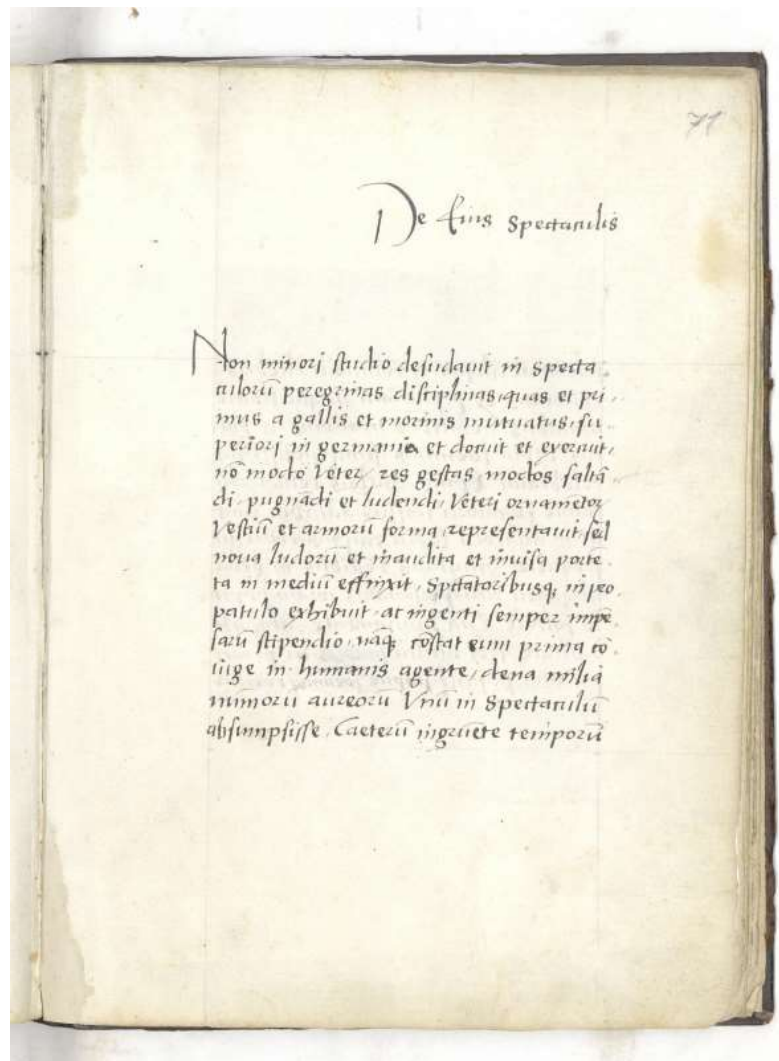 71
De Eius Spectaculis
Non minori studio desudauit in specta
culorū peregrinas disciplinas, quas et pri
mus a gallis et morinis mutuatus, su
periori in germania et docuit et exercuit,
nō modo Veterꝝ res gestas, modos saltā
di, pugnādi et ludendi, Veteri ornamētorꝝ
Vestiū et armorū forma representauit, sed
noua ludorū et inaudita et inuisa portē
ta in mediū effinxit, Spētatoribusq; in pro
patulo exhibuit, ac ingenti semper impē
sarū stipendio, nāq; cōstat eum prima cō
iuge in humanis agente, dena milia
nūmorū aureorū Vnū in Spectaculū
absumpsisse, Caeterū ingruēte temporū